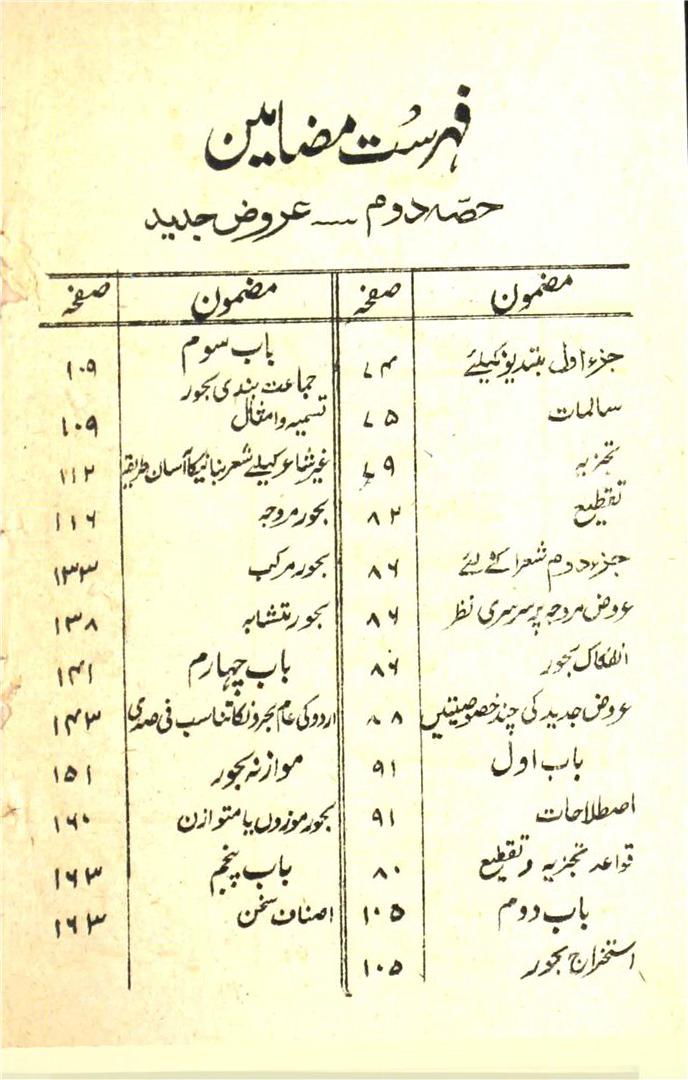 فہرست مضامین
حصہ دوم — عروض جدید
مضمون صفحہ
جزء اول مبتدیوں کیلئے ۷۴
سالمات ۷۵
تجزیہ ۷۹
تقطیع ۸۲
جزء دوم شعرا کے لئے ۸۶
عروض مروجہ پر سرسری نظر ۸۶
انفکاک بحور ۸۶
عروض جدید کی چند خصوصیتیں ۸۸
باب اول ۹۱
اصطلاحات ۹۱
قواعد تجزیہ و تقطیع ۸۰
باب دوم ۱۰۵
استخراج بحور ۱۰۵
مضمون صفحہ
باب سوم ۱۰۹
جماعت بندی بحور
تسمیہ و امثال ۱۰۹
غیر شاعر کیلئے شعر بنانیکا آسان طریقہ ۱۱۲
بحور مروجہ ۱۱۶
بحور مرکب ۱۳۳
بحور متشابہ ۱۳۸
باب چہارم ۱۴۱
اردو کی عام بحرونکا تناسب فی صدی ۱۴۳
موازنہ بحور ۱۵۱
بحور موزوں یا متوازن ۱۶۰
باب پنجم ۱۶۳
اصناف سخن ۱۶۳